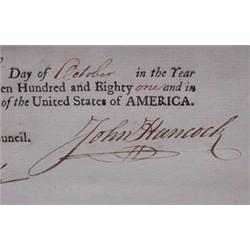 Day of October in the Year
en Hundred and Eighty one and in
of the United States of AMERICA.
uncil.
John Hancock